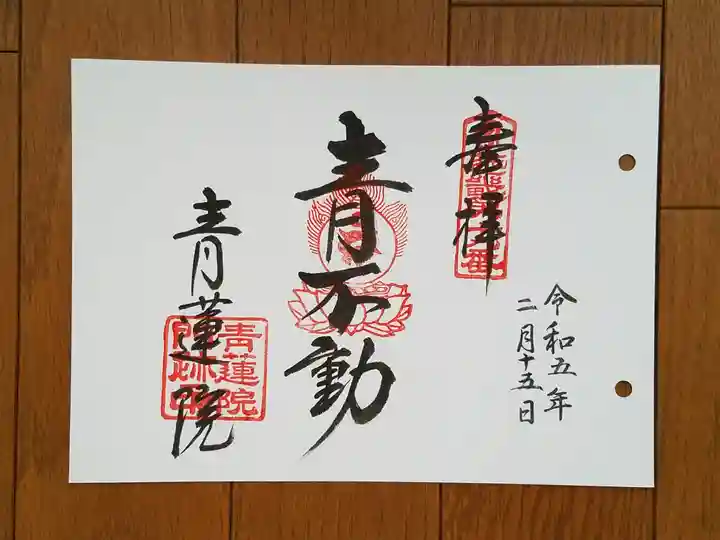 奉拝
令和五年
二月十五日
青不動
青蓮院
青蓮院